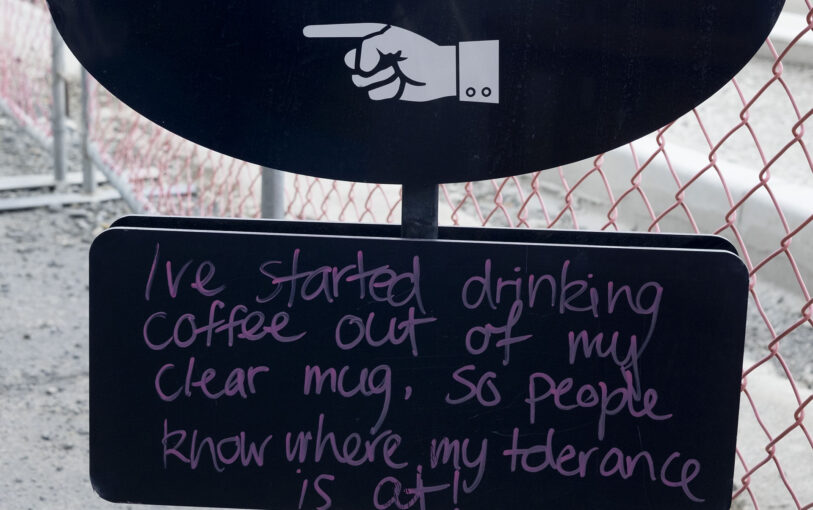 I've started drinking
coffee out of my
clear mug, so people
know where my tolerance
is at!